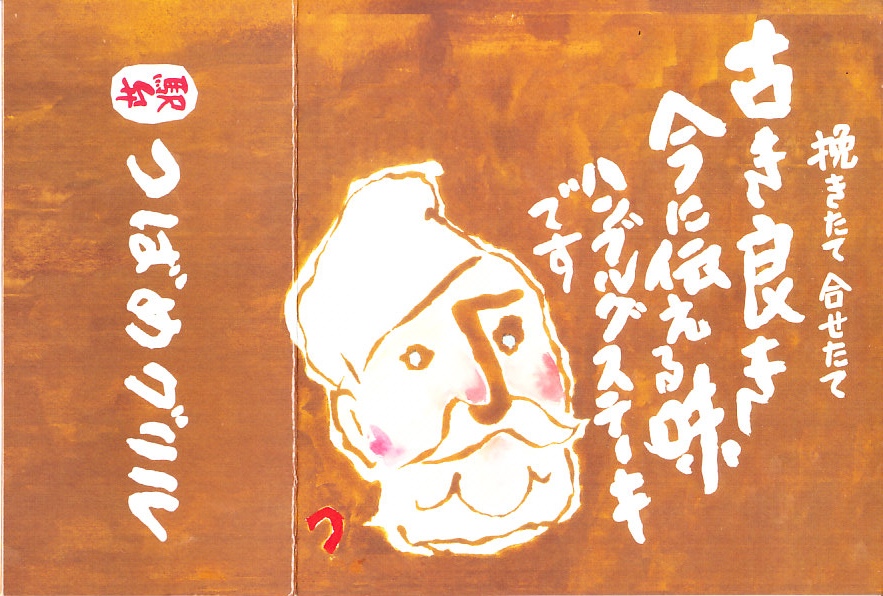 挽きたて 合せたて
古き良き
今に伝える味
ハンブルグステーキ
です
つ
駅弁
つばめグリル